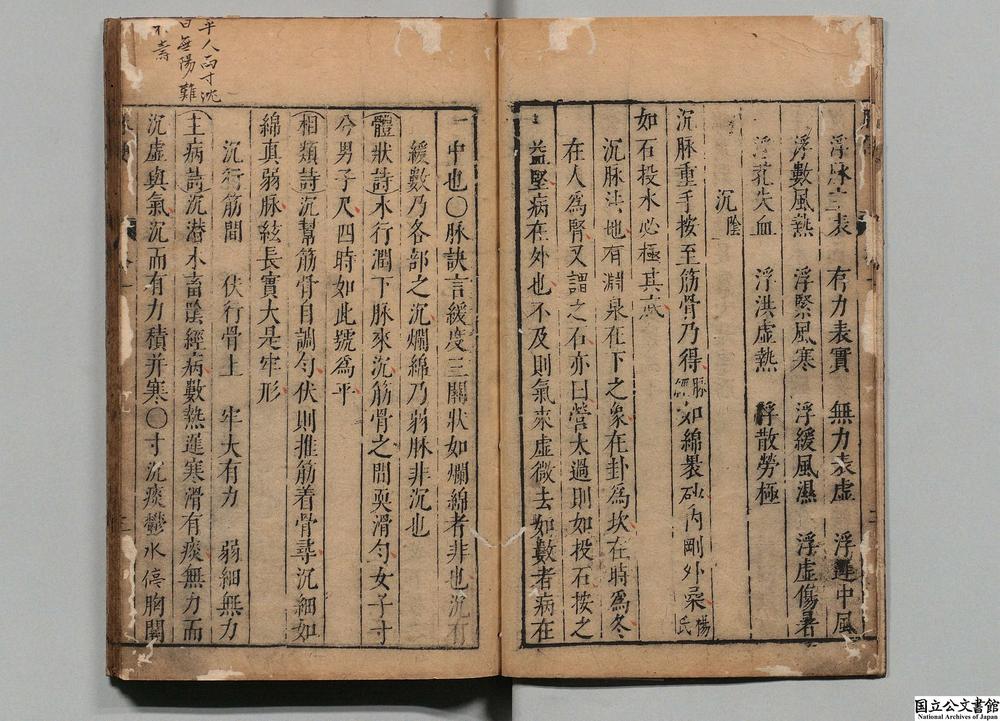 浮脉主表　有力表實　無力表虛　浮遲中風
浮數風熱　浮緊風寒　浮緩風濕　浮虛傷暑
浮芤失血　浮洪虛熱　浮散勞極
沉陰
沉脉重手按至筋骨乃得脉經如綿裹砂內剛外柔楊氏
如石投水必極其底
沉脉法地有淵泉在下之象在卦爲坎在時爲冬
在人爲腎又謂之石亦曰營太過則如投石按之
益堅病在外也不及則氣來虛微去如數者病在
中也〇脉訣言緩度三關狀如爛綿者非也沉有
緩數乃各部之沉爛綿乃弱脉非沉也
體狀詩水行潤下脉來沉筋骨之間耎滑勻女子寸
兮男子尺四時如此號爲平
相類詩沉幫筋骨自調勻伏則推筋着骨尋沉細如
綿真弱脉絃長實大是牢形
沉行筋間　伏行骨上　牢大有力　弱細無力
主病詩沉潜水畜陰經病數熱遲寒滑有痰無力而
沉虛與氣沉而有力積并寒〇寸沉痰鬱水停胸關
平人兩寸沈
曰無陽難
不壽
国立公文書館
National Archives of Japan